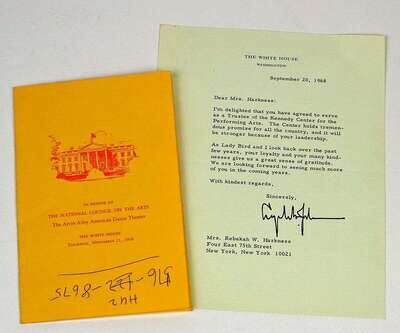 IN HONOR OF
THE NATIONAL COUNCIL ON THE ARTS
The Alvin Ailey American Dance Theater
THE WHITE HOUSE
Thursday, November 21, 1968
516-
HU2 - 8675
THE WHITE HOUSE
WASHINGTON
September 20, 1968
Dear Mrs. Harkness:
I'm delighted that you have agreed to serve
as a Trustee of the Kennedy Center for the
Performing Arts. The Center holds tremen-
dous promise for all the country, and it will
be stronger because of your leadership.
As Lady Bird and I look back over the past
few years, your loyalty and your many kind-
nesses give us a great sense of gratitude.
We are looking forward to seeing much more
of you in the coming years.
With kindest regards,
Sincerely,
Mrs. Rebekah W. Harkness
Four East 75th Street
New York, New York 10021